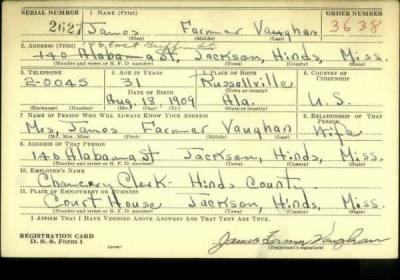 SERIAL NUMBER 1. NAME (Print) ORDER NUMBER
2627 James Farmer Vaughan 3638
(First) (Middle) (Last)
2. ADDRESS (Print)
140 Alabama St, Jackson, Hinds, Miss.
(Number and street or R. F. D. number) (Town) (County) (State)
3. TELEPHONE 4. AGE IN YEARS 5. PLACE OF BIRTH 6. COUNTRY OF CITIZENSHIP
2-0045 31 Russellville
DATE OF BIRTH (Town or county)
Aug. 18, 1909 Ala. U.S.
(Exchange) (Number) (Mo.) (Day) (Yr.) (State or country)
7. NAME OF PERSON WHO WILL ALWAYS KNOW YOUR ADDRESS 8. RELATIONSHIP OF THAT PERSON
Mrs. James Farmer Vaughan Wife
(Mr., Mrs., Miss) (First) (Middle) (Last)
9. ADDRESS OF THAT PERSON
140 Alabama St Jackson, Hinds, Miss.
(Number and street or R. F. D. number) (Town) (County) (State)
10. EMPLOYER'S NAME
Chancery Clerk - Hinds County
11. PLACE OF EMPLOYMENT OR BUSINESS
Court House Jackson, Hinds, Miss.
(Number and street or R. F. D. number) (Town) (County) (State)
I AFFIRM THAT I HAVE VERIFIED ABOVE ANSWERS AND THAT THEY ARE TRUE.
REGISTRATION CARD
D. S. S. Form 1 (over) James Farmer Vaughan
(Registrant's signature)